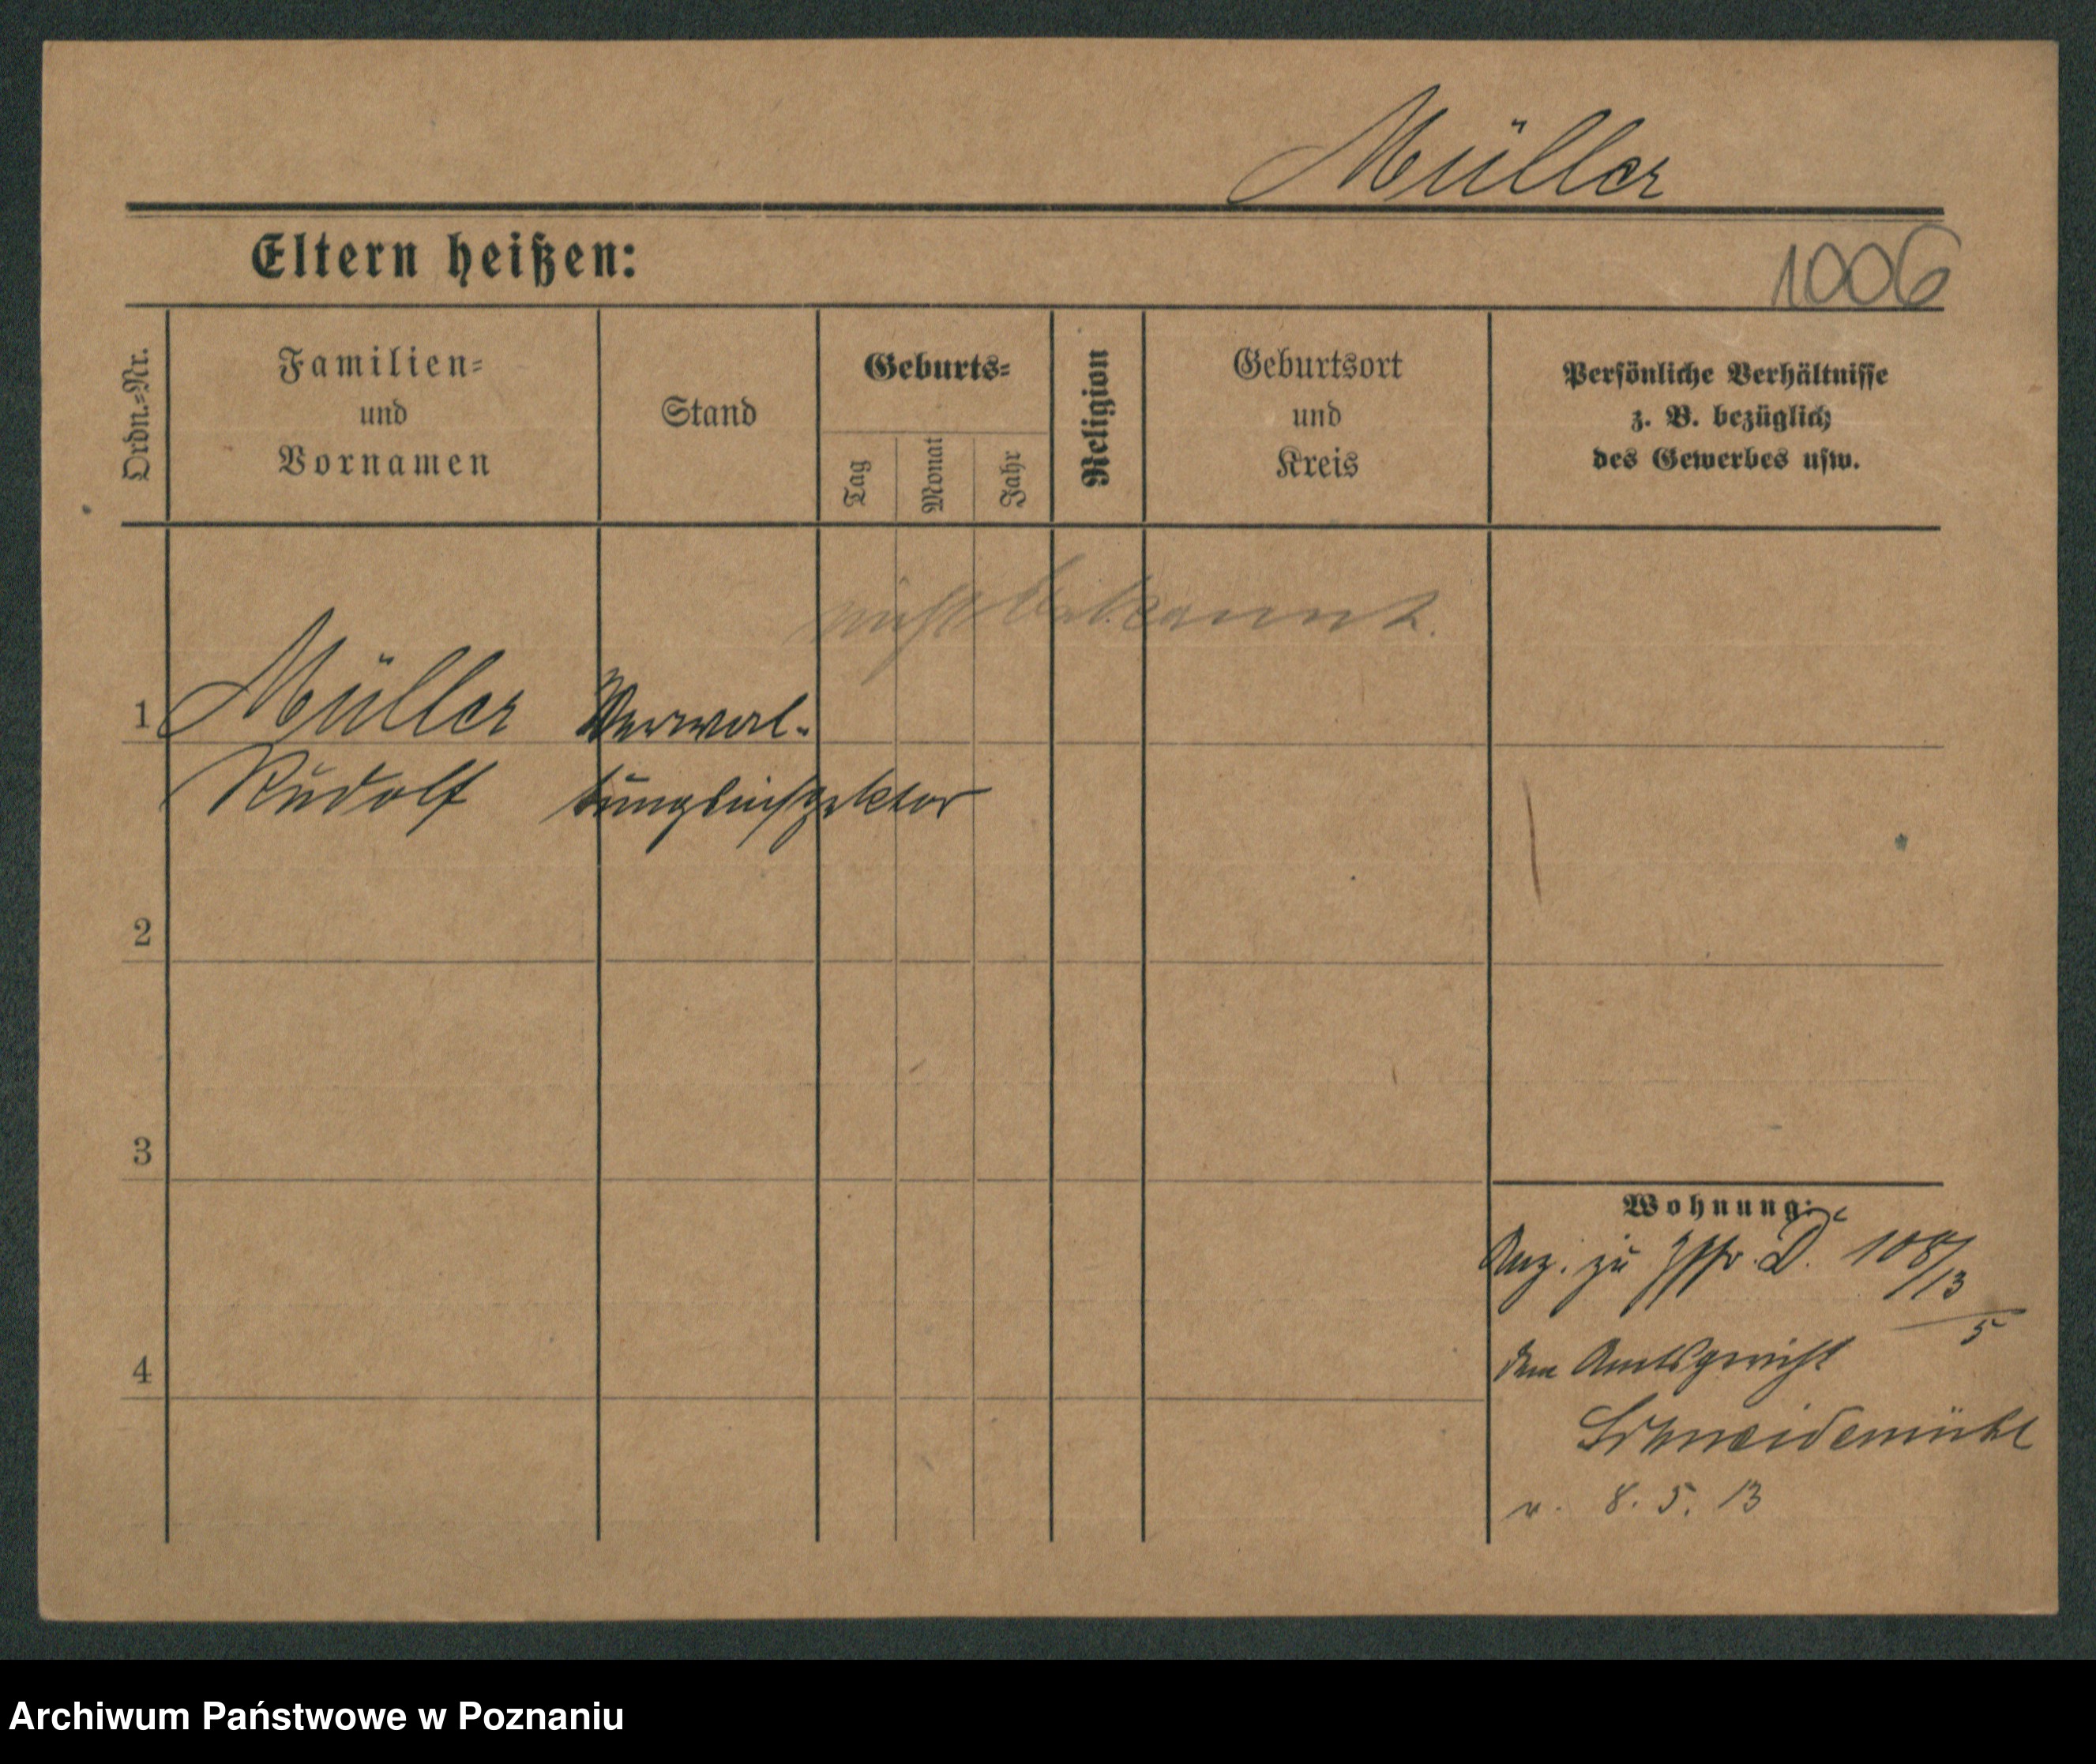 Müller
Eltern heißen:
1006
Ordn.-Nr.
Familien-
und
Vornamen
Stand
Geburts-
Tag
Monat
Jahr
Religion
Geburtsort
und
Kreis
Persönliche Verhältnisse
z. B. bezüglich
des Gewerbes usw.
nicht bekannt.
1 Müller Verwal-
Rudolf tungsinspektor
2
3
4
Wohnung:
zu D. 108/13
5
dem Amtsgericht
Schneidemühl
v. 8. 5. 13
Archiwum Państwowe w Poznaniu